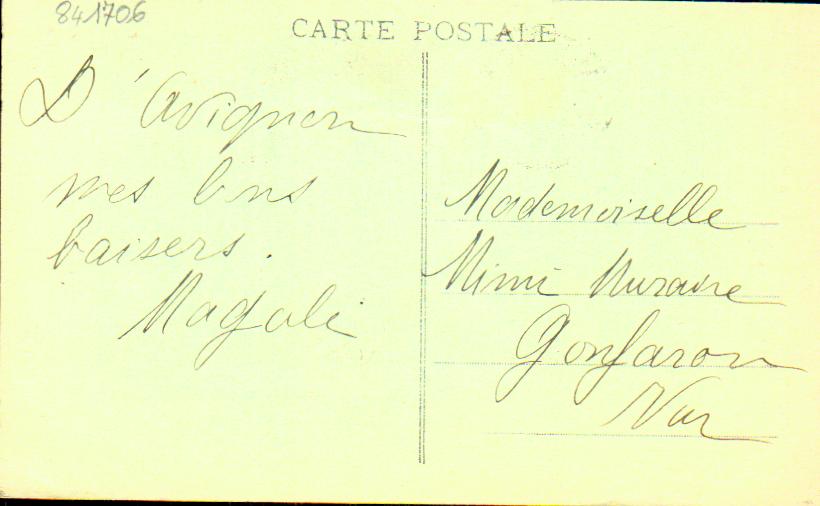 841706
CARTE POSTALE
D'Avignon
mes bons
baisers.
Magali
Mademoiselle
Mimi Muraire
Gonfaron
Var